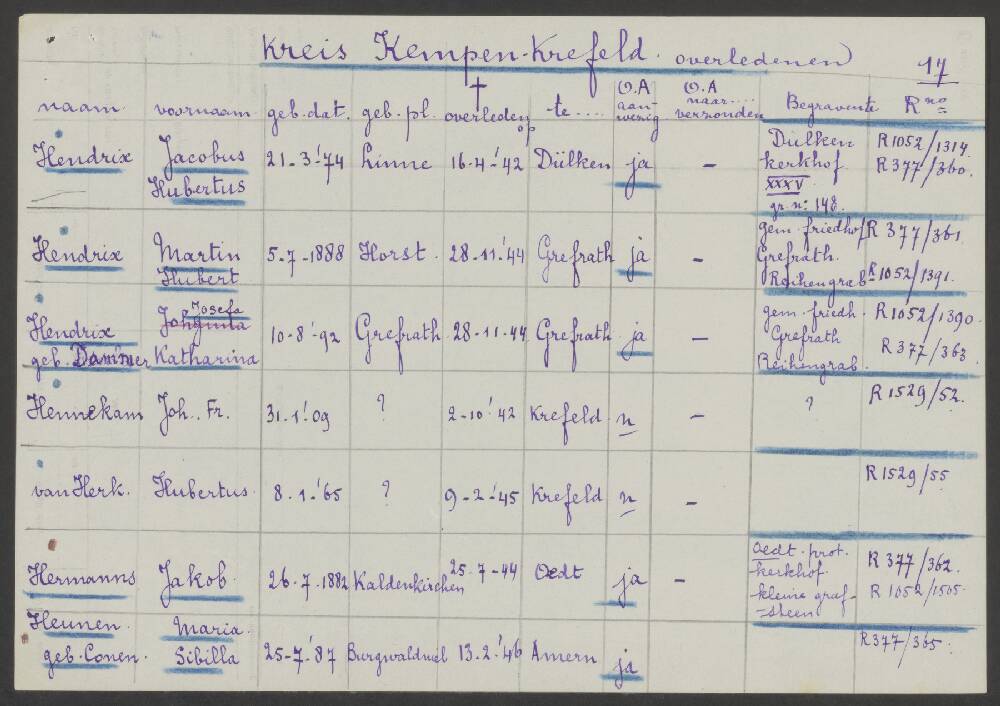 Kreis Kempen-Krefeld. overledenen
17
naam. voornaam. geb. dat. geb. pl. † overleden op te .... O.A aanwezig O.A naar.... verzonden Begravente R no
Hendrix Jacobus Hubertus 21-3-'74 Linne 16-4-'42 Dülken ja - Dülken kerkhof XXXV gr. n: 148. R1052/1314. R377/360.
Hendrix Martin Hubert 5-7-1888 Horst. 28-11-'44 Grefrath ja - gem. friedhof Grefrath. Reihengrab R377/361 R1052/1391.
Hendrix geb. Dammer Josefa Johanna Katharina 10-8-'92 Grefrath. 28-11-'44 Grefrath ja - gem. friedh. Grefrath Reihengrab. R1052/1390. R377/363
Hennekam Joh. Fr. 31.1.'09 ? 2-10-'42 Krefeld. n - ? R1529/52.
van Herk. Hubertus. 8.1.'65 ? 9-2-'45 Krefeld n - R1529/55
Hermanns Jakob. 26.7.1882 Kaldenkirchen 25-7-44 Oedt ja - Oedt. prot. kerkhof. kleine grafsteen R377/362. R1052/1505.
Heunen. geb. Conen. Maria. Sibilla 25-7-'87 Burgwaldniel 13.2.'46 Amern ja R377/365.